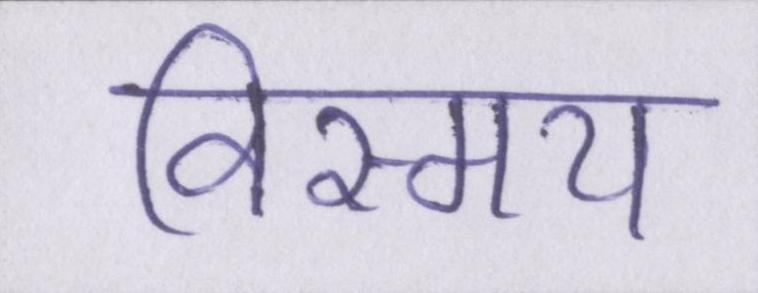 विस्मय